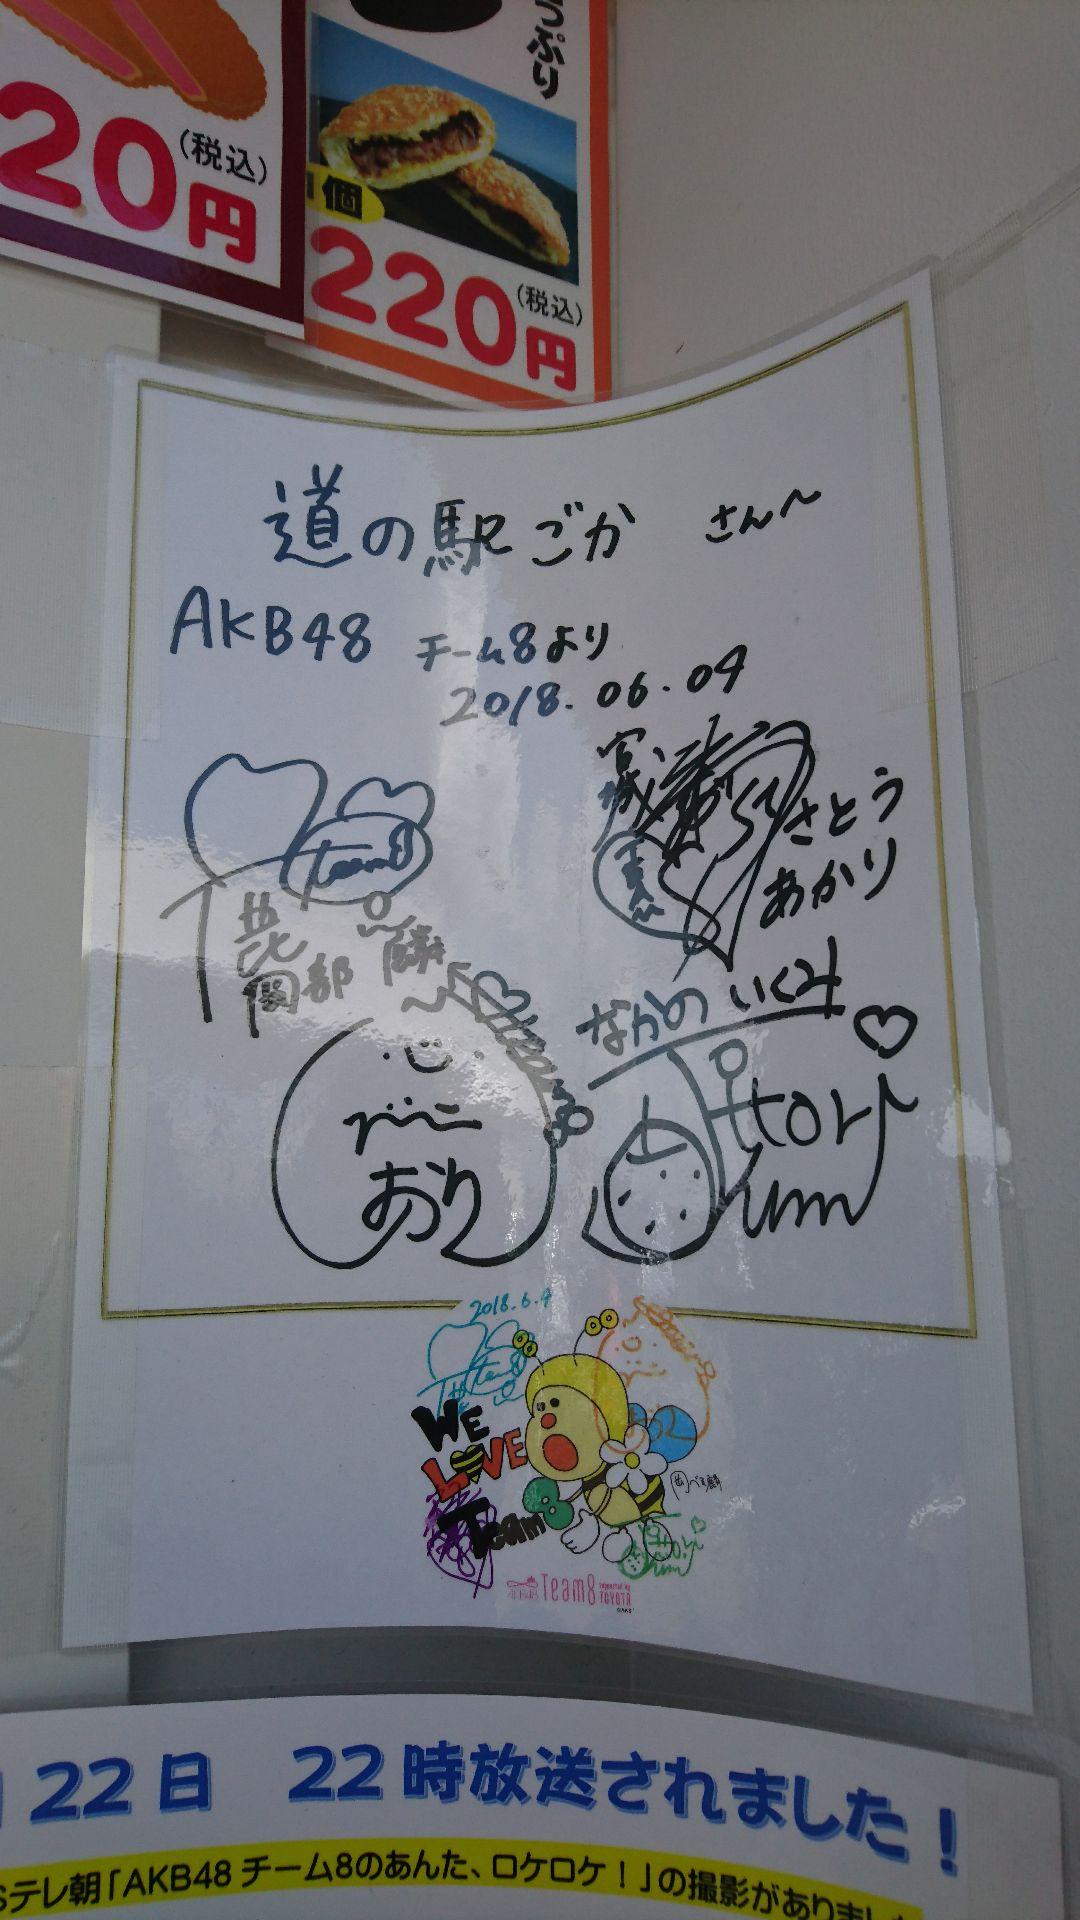 っぷり
20円
(税込)
1個
220円
(税込)
道の駅ごか さん〜
AKB48 チーム8より
2018.06.04
Team8
岡部 麟
さとう
あかり
なかの いくみ
おり
2018.6.4
WE
LOVE
Team8
AKB48 Team8 supported by TOYOTA
©AKS
22日 22時放送されました!
Sテレ朝「AKB48 チーム8のあんた、ロケロケ!」の撮影がありました